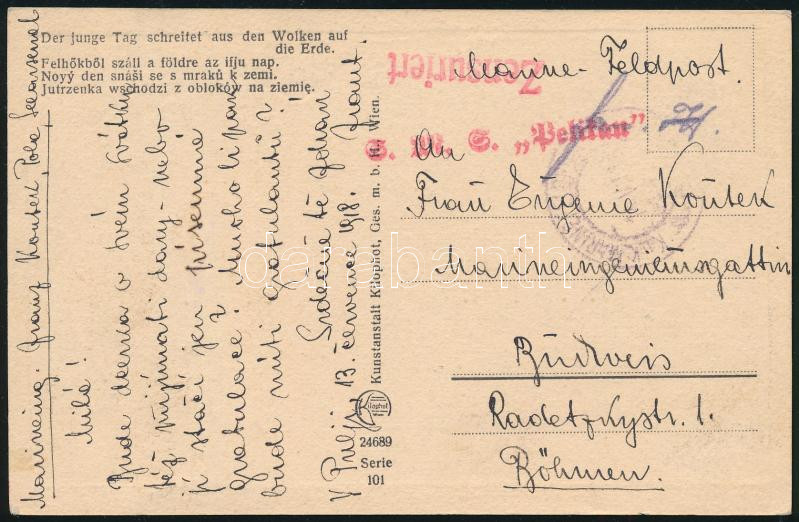 Der junge Tag schreitet aus den Wolken auf
die Erde.
Felhőkből száll a földre az ifju nap.
Nový den snáši se s mraků k zemi.
Jutrzenka wschodzi z obloków na ziemię.
Marineing. Franz Koutek, Pola, Seearsenal
Milá!
Bude dcerka o svém svátku
též přijímati dary - nebo
jí stačí jen písemné
gratulace? Mnoho-li pan
bude míti gratulantů?
Srdečně tě zdraví
V Pulji, 13. července 1918. Frant.
Kilophot
Wien
24689
Serie
101
Kunstanstalt Kilophot, Ges. m. b. H. Wien.
Zensuriert
S. M. S. „Pelikan”
Marine-Feldpost.
An
Frau Eugenie Koutek
Marineingenieursgattin
Budweis
Radetzkystr. 1.
Böhmen.
darabanth